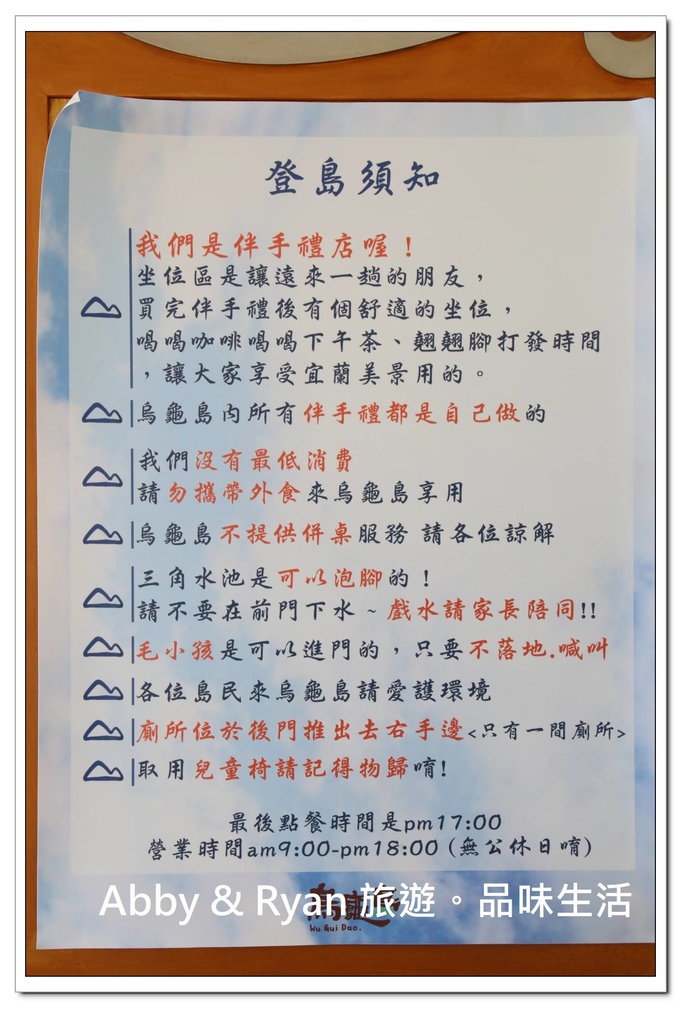 登島須知
我們是伴手禮店喔！
坐位區是讓遠來一趟的朋友，
買完伴手禮後有個舒適的坐位，
喝喝咖啡喝喝下午茶、翹翹腳打發時間
，讓大家享受宜蘭美景用的。
烏龜島內所有伴手禮都是自己做的
我們沒有最低消費
請勿攜帶外食來烏龜島享用
烏龜島不提供併桌服務 請各位諒解
三角水池是可以泡腳的！
請不要在前門下水~戲水請家長陪同!!
毛小孩是可以進門的，只要不落地.喊叫
各位島民來烏龜島請愛護環境
廁所位於後門推出去右手邊<只有一間廁所>
取用兒童椅請記得物歸唷!
最後點餐時間是pm17:00
營業時間am9:00-pm18:00 (無公休日唷)
Abby & Ryan 旅遊。品味生活
Wu Gui Dao.